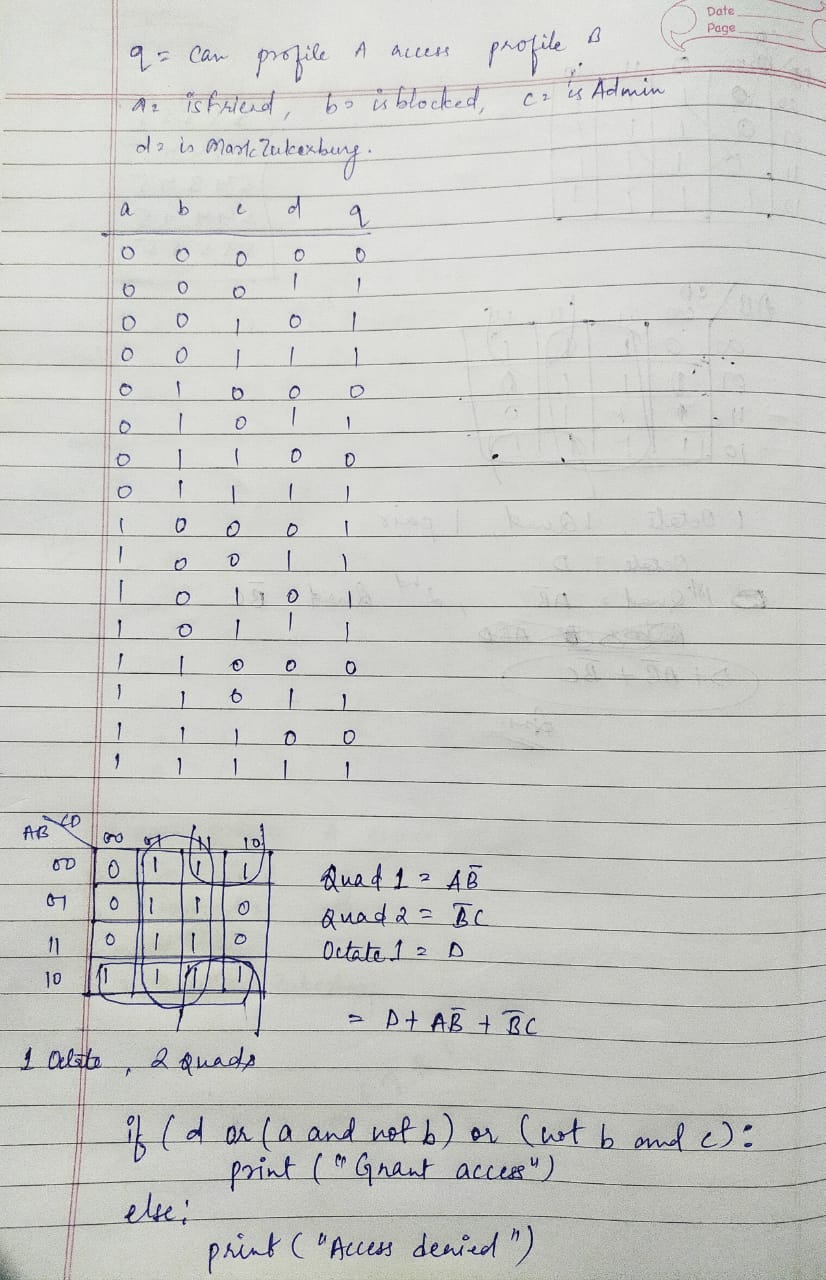 Date
Page
q = Can profile A access profile B
a = is friend, b = is blocked, c = is Admin
d = is Mark Zukerburg.
a b c d q
0 0 0 0 0
0 0 0 1 1
0 0 1 0 1
0 0 1 1 1
0 1 0 0 0
0 1 0 1 1
0 1 1 0 0
0 1 1 1 1
1 0 0 0 1
1 0 0 1 1
1 0 1 0 1
1 0 1 1 1
1 1 0 0 0
1 1 0 1 1
1 1 1 0 0
1 1 1 1 1
AB CD 00 01 11 10
00 0 1 1 1
01 0 1 1 0
11 0 1 1 0
10 1 1 1 1
Quad 1 = AB̅
Quad 2 = B̅C
Octate 1 = D
= D + AB̅ + B̅C
1 Octate, 2 Quads
if (d or (a and not b) or (not b and c):
print ("Grant access")
else:
print ("Access denied")